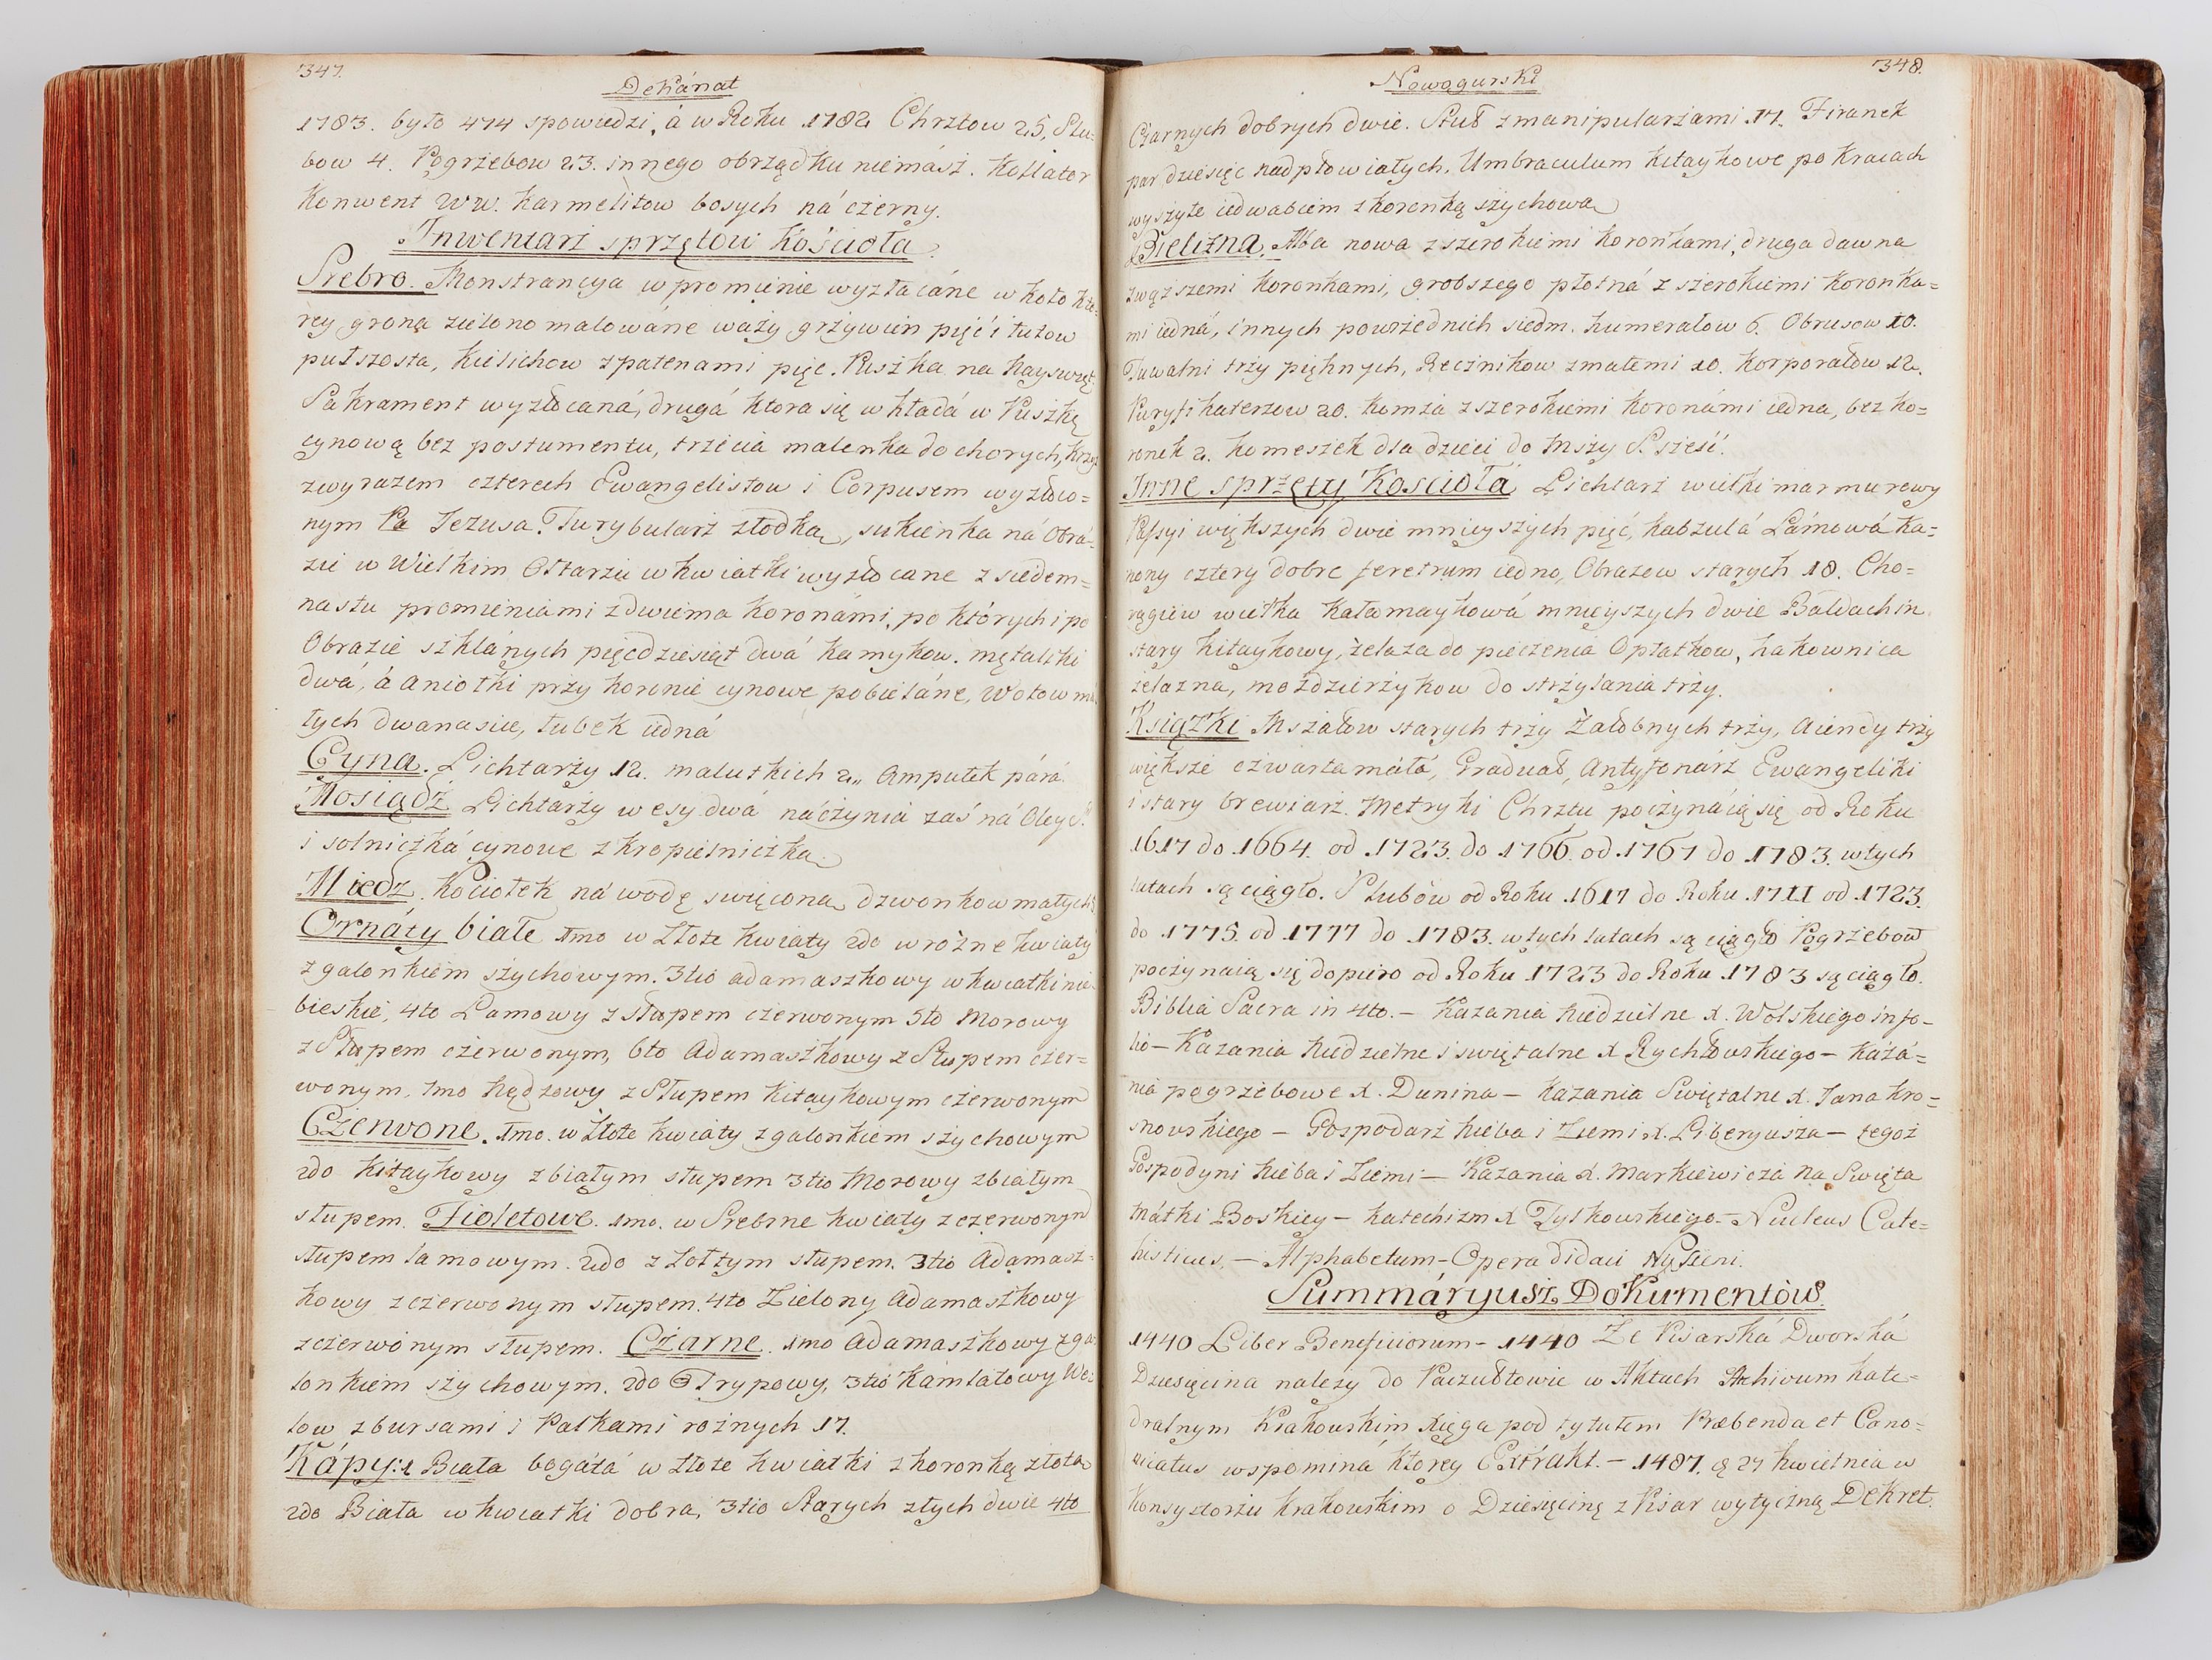 347.
Dekánat
1783. było 474 spowiedzi, á w Roku 1782 Chrztow 25, Slu=
bow 4. Pogrzebow 23. innego obrządku niemász. Kollator
Konwent WW. Karmelitow bosych ná czerny.
Inwentarz sprzętow Kościoła.
Srebro. Monstrancya w promienie wyzłacáne w koło któ=
rey grona zielono malowáne waży grzywien pięć i łutow
pułszosta, Kielichow z patenami pięc. Puszka na Nayswięt:
Sakrament wyzłocaná, drugá ktora się wkładá w Puszkę
cynową bez postumentu, trzecia malenka do chorych, Krzyż
z wyrazem czterech Ewangelistow i Corpusem wyzłoco=
nym Pa Jezusa. Turybularz z łodką, sukienka ná Obrá=
zie w Wielkim Ołtarzu w kwiatki wyzłocane z siedem=
nastu promieniami z dwiema koronámi, po których i po
Obrazie szklánych pięcdziesiąt dwá kamykow. mętaliki
dwá, á aniołki przy koronie cynowe pobieláne, Wotow má=
łych dwanascie, łubek iedná
Cyna. Lichtarzy 12. malutkich 2,, Ampułek párá.
Mosiądz Lichtarzy wesy dwá náczyniá zaś ná Oley S.
i solniczká cynowe z kropielniczka
Miedz. Kociołek ná wodę swięcona, dzwonkow małych
Ornáty białe 1mo w złote kwiaty 2do w rożne kwiáty
z galonkiem szychowym. 3tio adamaszkowy w kwiatki nie=
bieskie, 4to Lamowy z słupem czerwonym 5to Morowy
z Słupem czerwonym, 6to Adamaszkowy z Słupem czer=
wonym, 7mo Kędzowy z Słupem kitaykowym czerwonym
Czerwone. 1mo. w złote kwiaty z galonkiem szychowym
2do Kitaykowy z białym słupem 3tio Morowy z białym
słupem. Fioletowe. 1mo. w Srebrne kwiaty z czerwonym
słupem lamowym. 2do z żołtym słupem. 3tio Adamasz=
kowy z czerwonym słupem. 4to Zielony Adamaszkowy
z czerwonym słupem. Czarne. 1mo Adamaszkowy z ga=
lonkiem szychowym. 2do Trypowy, 3tio Kamlatowy We=
low z bursami i Palkami rożnych 17.
Kápy: 1 Biała bogátá w złote kwiatki z koronką złotą
2do Biała w kwiatki dobra, 3tio Starych złych dwie 4to
348.
Nowogurski
Czarnych dobrych dwie. Stuł z manipularzami 17. Firanek
par dziesięc nadpłowiałych, Umbraculum kitaykowe po kraiach
wyszyte iedwabiem z koronką szychową
Bielizna. Alba nowa z szerokiemi koronkami, druga dawna
z węzszemi koronkami, grobszego płotná z szerokiemi koronka=
mi iedná, innych powszednich siedm. Humerałow 6. Obrusow 10.
Tuwalni trzy pięknych, Ręcznikow z małemi 10. Korporałow 12.
Puryfikaterzow 20. Komża z szerokiemi koronámi iedna, bez ko=
ronek 2. Komeszek dla dzieci do Mszy S. sześć.
Inne sprzęty Kościoła Lichtarz wielki marmurowy
Passyi większych dwie mnieyszych pięć, kabzulá Lámowá Ka=
nony cztery dobre feretrum iedno, Obrazow starych 18. Cho=
rągiew wielka kałamaykowá mnieyszych dwie Baldachin
stary kitaykowy, żelaza do pieczenia Opłatkow, hakownica
żelazna, mozdzierzykow do strzylania trzy.
Książki Mszałow starych trzy Załobnych trzy, Aiendy trzy
większe czwarta małá, Graduał, Antyfonárz Ewangeliki
i stary brewiarz. Metryki Chrztu poczynáią się od Roku
1617 do 1664. od 1723. do 1766. od 1767 do 1783. w tych
latach są ciągło. Slubów od Roku 1617 do Roku 1711 od 1723.
do 1775. od 1777 do 1783. w tych latach są ciągło Pogrzebow
poczynaią się dopiero od Roku 1723 do Roku 1783 są ciągło.
Biblia Sacra in 4to. – Kazania Niedzielne X. Wolskiego in fo-
lio – Kazania Niedzielne i swiętalne X Rychłowskiego – Kazá=
nia pogrzebowe X. Dunina – Kazania Swiętalne X. Jana Kro=
snowskiego – Gospodarz Nieba i Ziemi X. Liberyusza – tegoż
Gospodyni Nieba i Ziemi – Kazania X. Markiewicza na Swięta
Mátki Boskiey – Katechizm X Tylkowskiego – Nucleus Cate=
histicus, – Alphabetum – Opera didaci Nysseni.
Summáryusz Dokumentów
1440 Liber Beneficiorum – 1440 Ze Pisarská Dworská
Dziesięcina nalezy do Paczułtowic w Aktach Archivum Kate=
dralnym Krakowskim xięga pod tytułem Præbenda et Cano=
nicatus wspominá ktorey Extrákt. – 1487. d 27 Kwietnia w
Konsystorzu Krakowskim o Dziesięcinę z Pisar wytyczną Dekret.